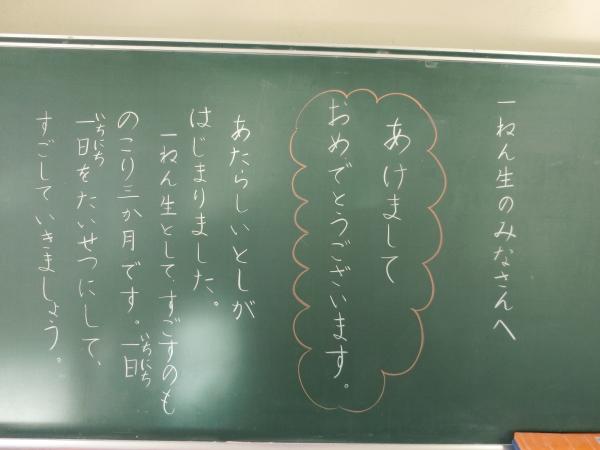 一ねん生のみなさんへ
あけまして
おめでとうございます。
あたらしいとしが
はじまりました。
一ねん生として、すごすのも
のこり三か月です。一日
いちにち
一日をたいせつにして、
いちにち
すごしていきましょう。